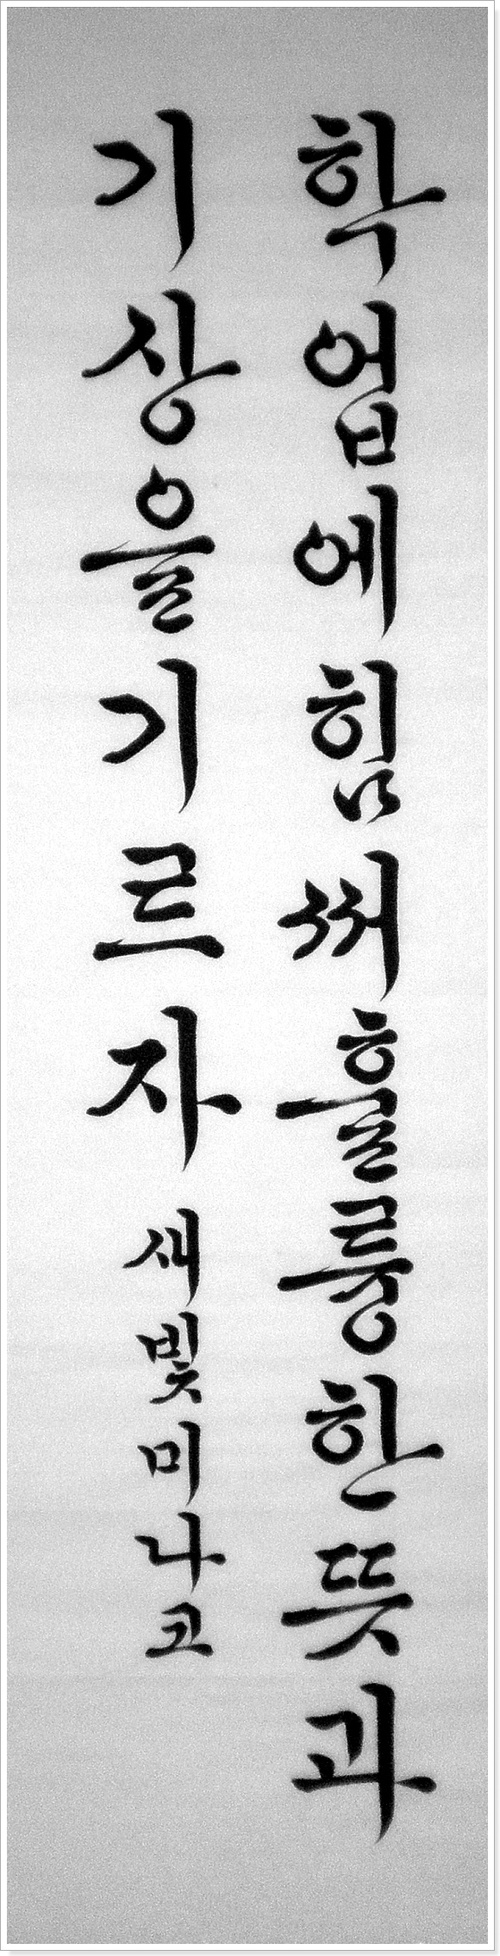 학업에힘써훌륭한뜻과
기상을기르자 새빛미나고